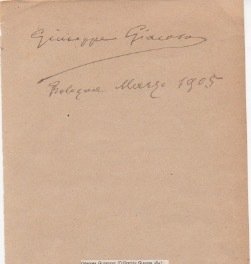 Giuseppe Giacosa
Bologna Marzo 1905